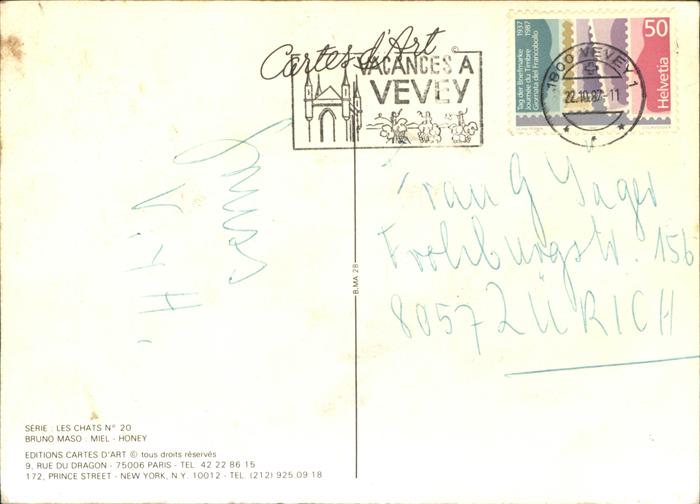 Cartes d'Art ©
VACANCES A
VEVEY
Tag der Briefmarke 1937
Journée du Timbre 1987
Giornata del Francobollo
50
Helvetia
COURVOISIER
1800 VEVEY 1
22.10.87-11
Frau G Jager
Frohburgstr. 156
8057 ZÜRICH
B.MA 28
SERIE : LES CHATS N° 20
BRUNO MASO : MIEL - HONEY
EDITIONS CARTES D'ART © tous droits réservés
9, RUE DU DRAGON - 75006 PARIS - TEL. 42 22 86 15
172, PRINCE STREET - NEW YORK, N.Y. 10012 - TEL. (212) 925.09.18